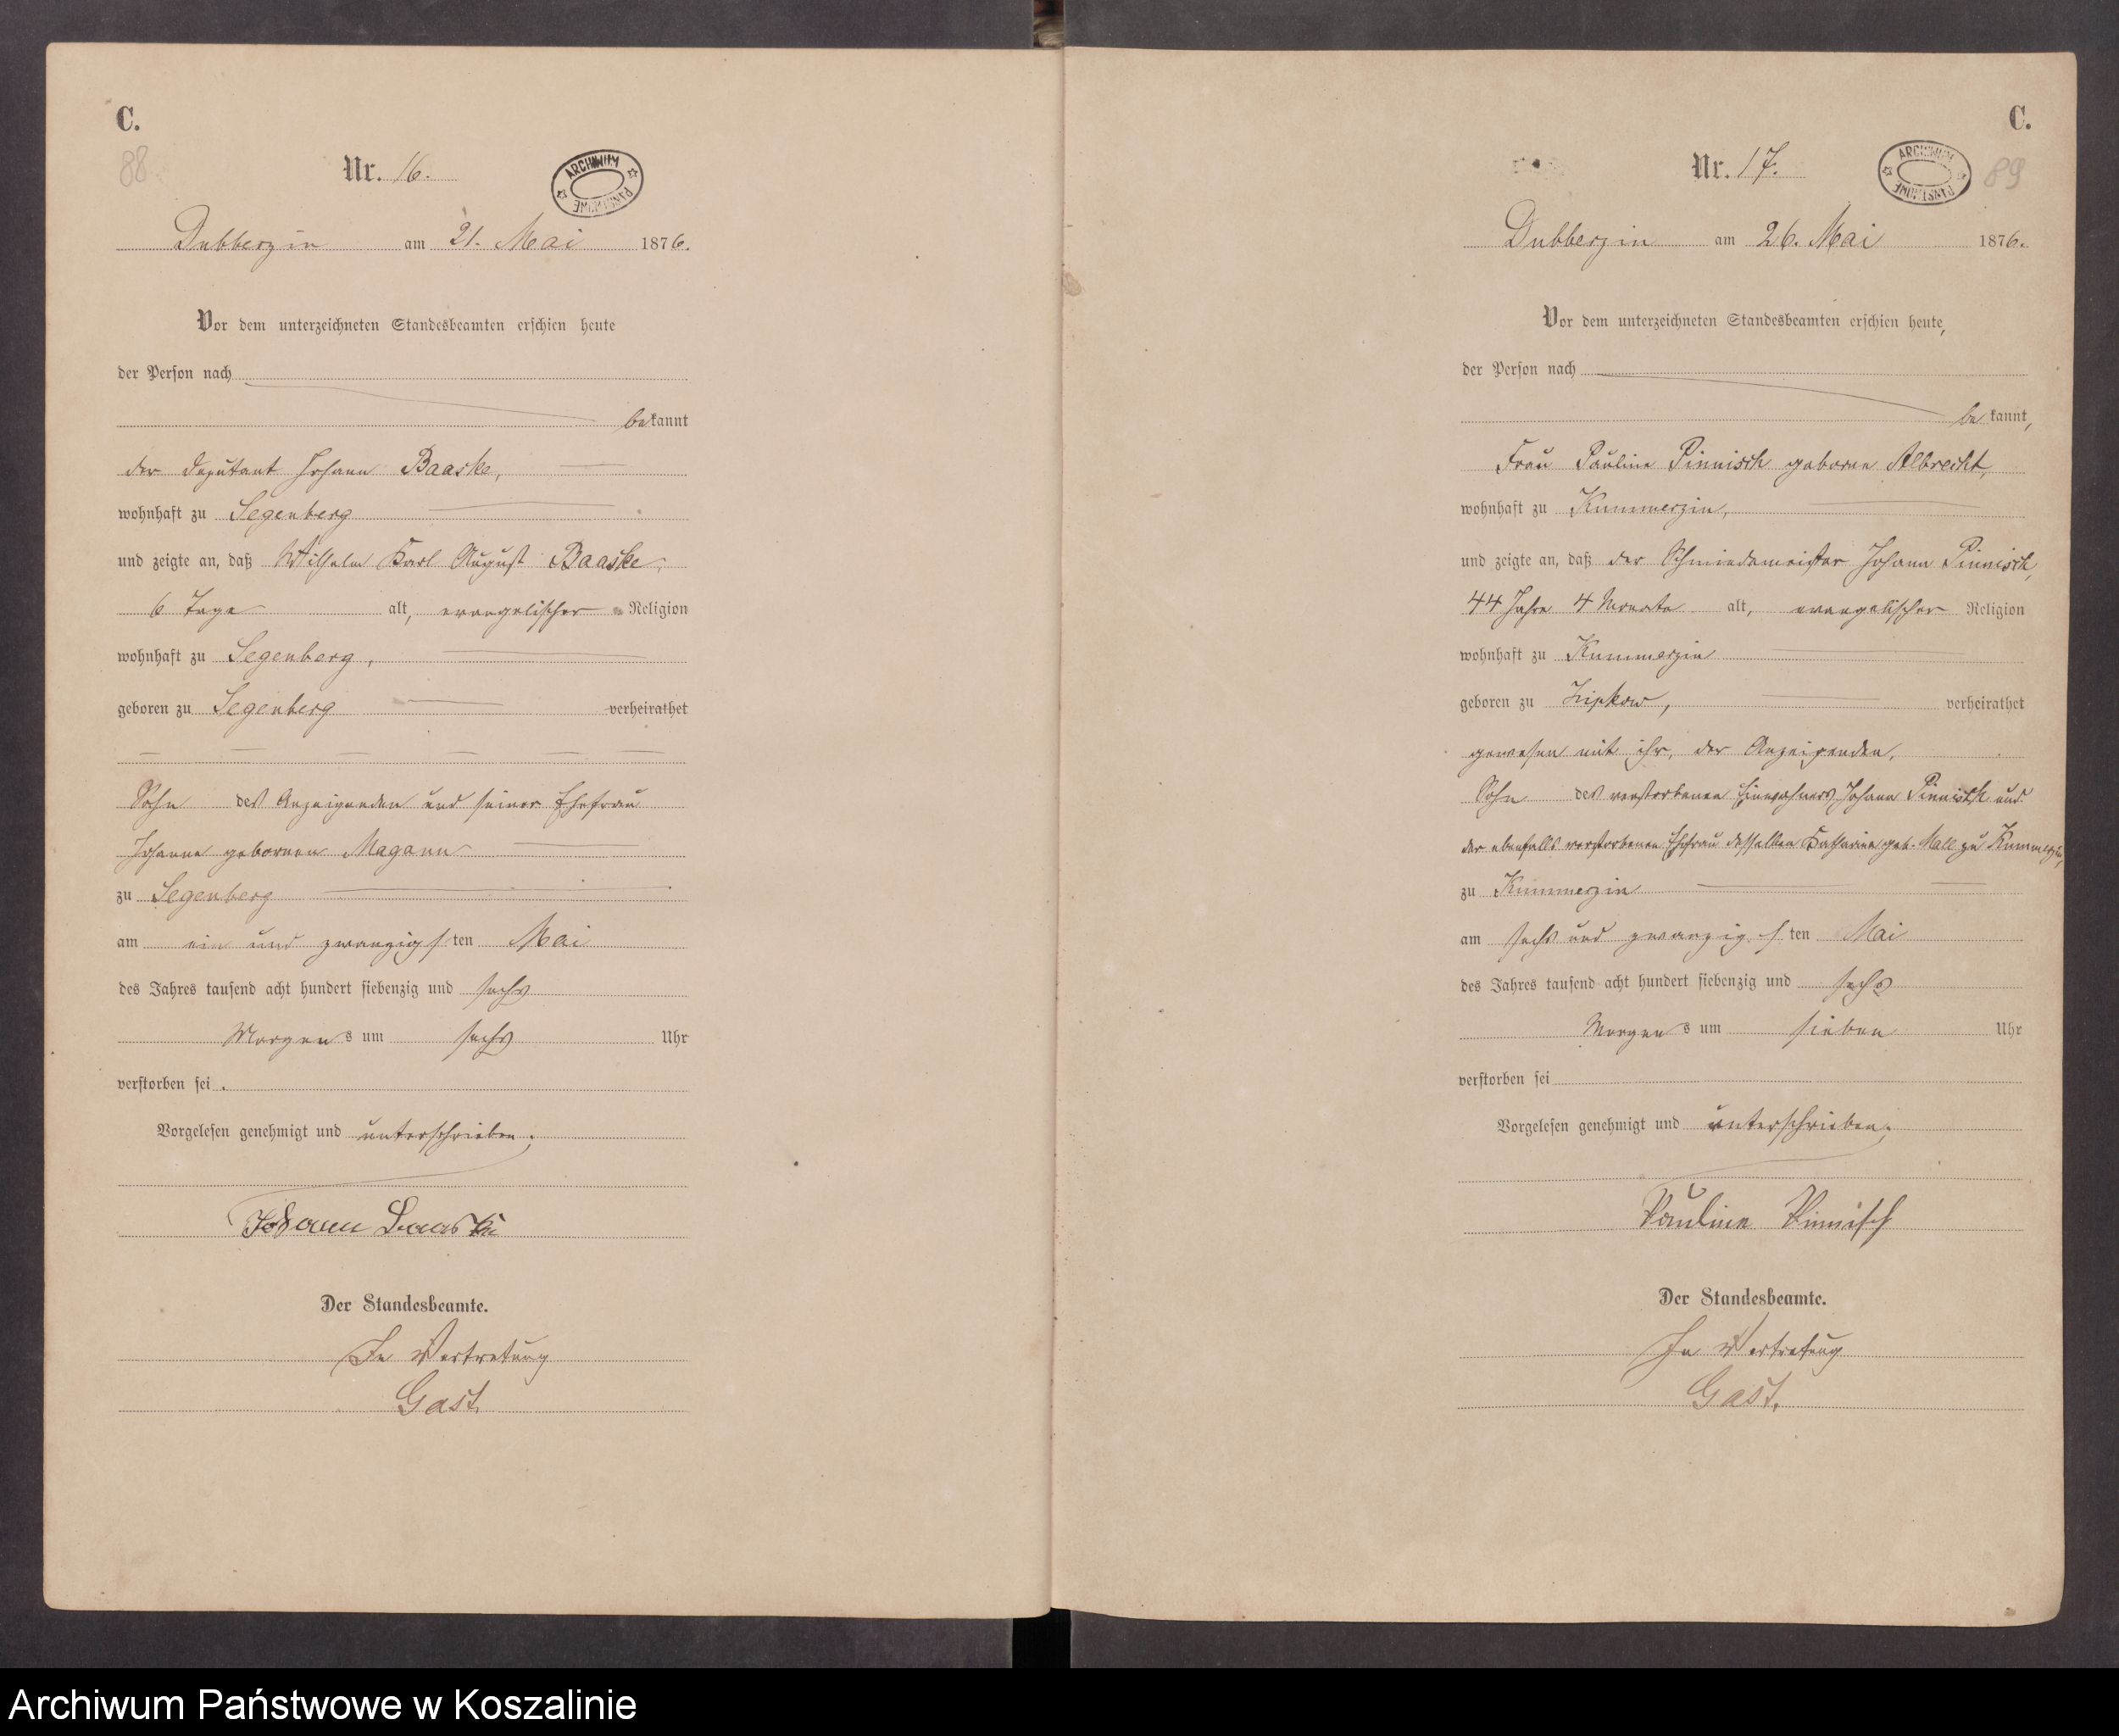 C.
88
Nr. 16.
ARCHIWUM PAŃSTWOWE
Dubberzin am 21. Mai 1876.
Vor dem unterzeichneten Standesbeamten erschien heute
der Person nach
bekannt
der Deputant Johann Baaske,
wohnhaft zu Segenberg
und zeigte an, daß Wilhelm Karl August Baaske,
6 Tage alt, evangelischer Religion
wohnhaft zu Segenberg,
geboren zu Segenberg verheirathet
Sohn des Anzeigenden und seiner Ehefrau
Johanne gebornen Magann
zu Segenberg
am ein und zwanzigsten Mai
des Jahres tausend acht hundert siebenzig und sechs
Morgens um sechs Uhr
verstorben sei.
Vorgelesen genehmigt und unterschrieben.
Johann Baaske
Der Standesbeamte.
In Vertretung
Gast.
C.
Nr. 17.
ARCHIWUM PAŃSTWOWE
89
Dubberzin am 26. Mai 1876.
Vor dem unterzeichneten Standesbeamten erschien heute,
der Person nach
bekannt,
Frau Pauline Pinnisch geborne Albrecht,
wohnhaft zu Kummerzin,
und zeigte an, daß der Schmiedemeister Johann Pinnisch,
44 Jahre 4 Monate alt, evangelischer Religion
wohnhaft zu Kummerzin
geboren zu Zipkow, verheirathet
gewesen mit ihr, der Anzeigenden,
Sohn des verstorbenen Einwohners Johann Pinnisch und
der ebenfalls verstorbenen Ehefrau desselben Katharine geb. Mall zu Kummerzin,
zu Kummerzin
am sechs und zwanzigsten Mai
des Jahres tausend acht hundert siebenzig und sechs
Morgens um sieben Uhr
verstorben sei
Vorgelesen genehmigt und unterschrieben.
Pauline Pinnisch
Der Standesbeamte.
In Vertretung
Gast.
Archiwum Państwowe w Koszalinie